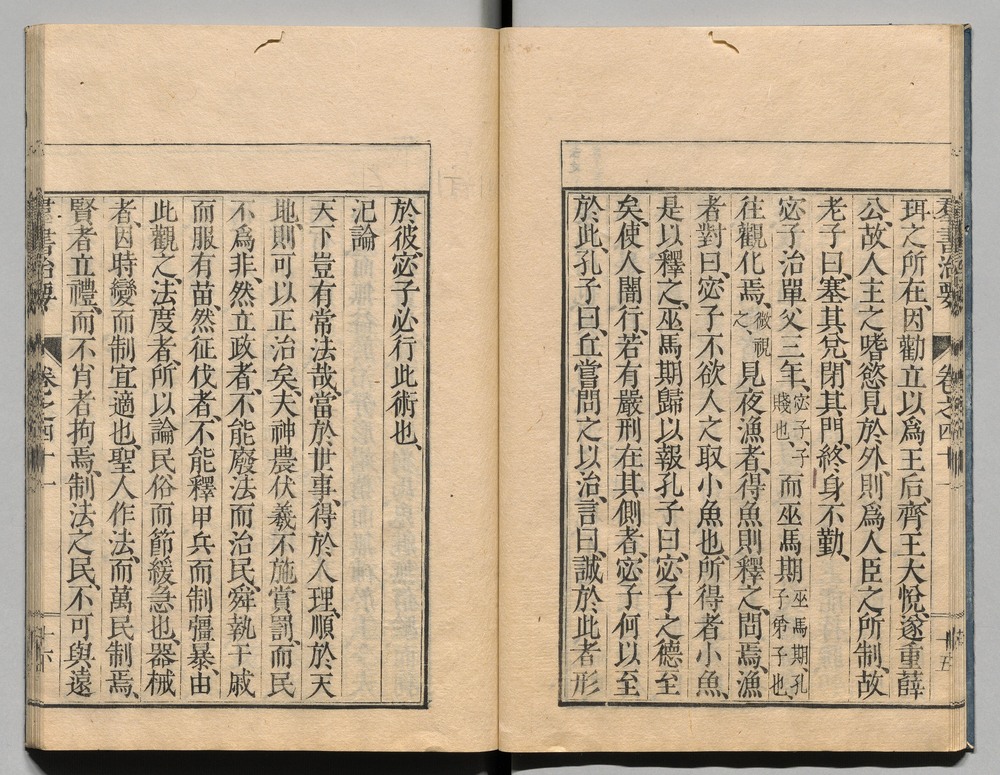 羣書治要 卷之四十一 十五
珥之所在、因勸立以爲王后、齊王大悅、遂重薛
公、故人主之嗜慾見於外、則爲人臣之所制、故
老子曰、塞其兌、閉其門、終身不勤、
宓子治單父三年、宓子、子賤也、而巫馬期巫馬期、孔子弟子也、
往觀化焉、微視之、見夜漁者、得魚則釋之、問焉、漁
者對曰、宓子不欲人之取小魚也、所得者小魚、
是以釋之、巫馬期歸以報孔子曰、宓子之德至
矣、使人闇行、若有嚴刑在其側者、宓子何以至
於此、孔子曰、丘嘗問之以治、言曰、誠於此者形
於彼、宓子必行此術也、
汜論
天下豈有常法哉、當於世事、得於人理、順於天
地、則可以正治矣、夫神農伏羲不施賞罰、而民
不爲非、然立政者、不能廢法而治民、舜執干戚
而服有苗、然征伐者、不能釋甲兵而制彊暴、由
此觀之、法度者、所以論民俗而節緩急也、器械
者、因時變而制宜適也、聖人作法、而萬民制焉、
賢者立禮、而不肖者拘焉、制法之民、不可與遠
羣書治要 卷之四十一 十六